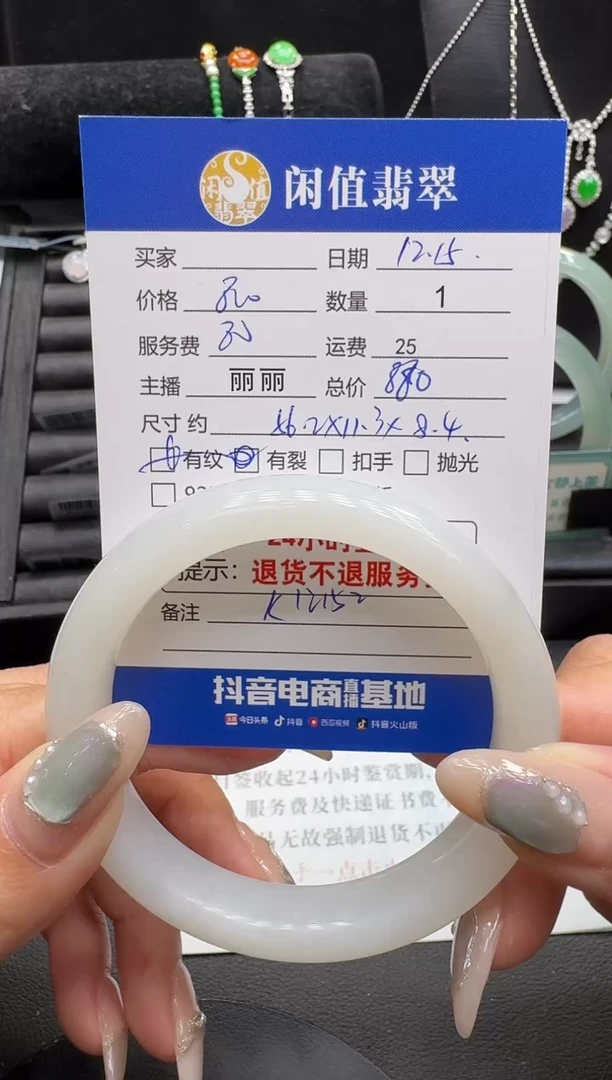 闲值翡翠
闲值翡翠
买家 日期 12.15.
价格 数量 1
服务费 运费 25
主播 丽丽 总价
尺寸 约 56.2X11.3X8.4
有纹 有裂 扣手 抛光
24小时
提示: 退货不退服务
备注 K12152
抖音电商直播基地
今日头条 抖音 西瓜视频 抖音火山版
签收起24小时鉴赏期,
服务费及快递证书费
无故强制退货不